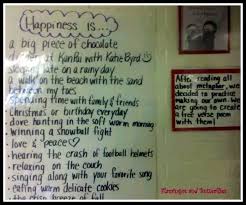 Happiness is...
a big piece of chocolate
at Kanki with Katie Byrd
sleeping late on a rainy day
a walk on the beach with the sand
between my toes
spending time with family & friends
Christmas or birthday everyday
dare hunting in the soft warm morning
winning a snowball fight
love & peace
hearing the crash of football helmets
relaxing on the couch
singing along with your favorite song
eating warm delicate cookies
the crisp breeze of fall
After reading all
about metaphor, we
decided to practice
making our own. We
are going to create
a free verse poem
with them!